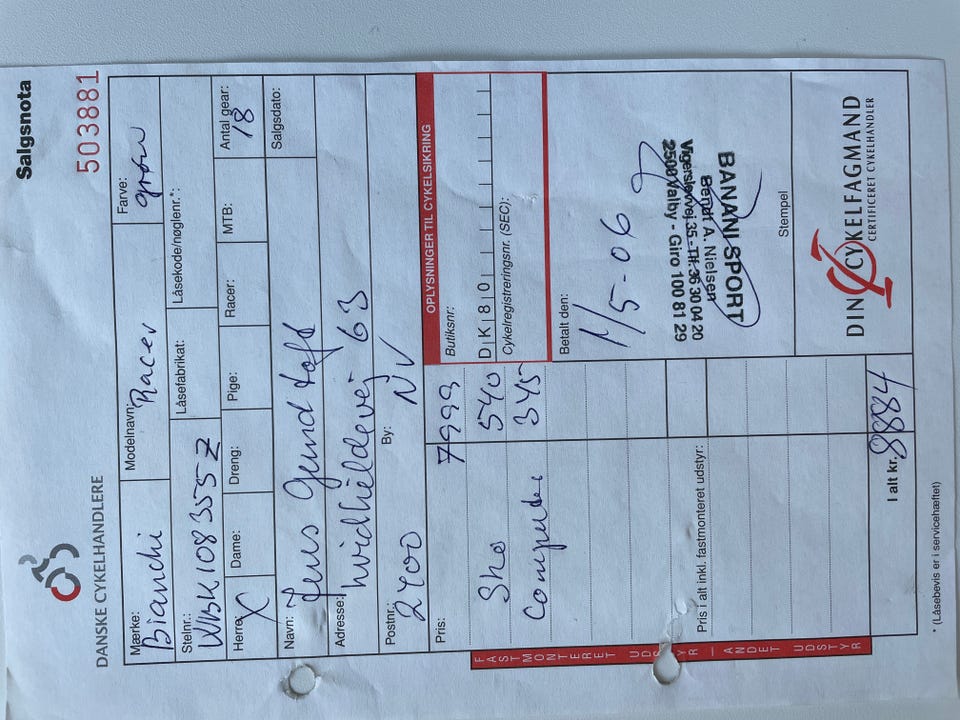 Salgsnota
503881
DANSKE CYKELHANDLERE
Mærke: Bianchi Modelnavn: Racer Farve: grøn
Stelnr.: WBK108355Z Låsefabrikat: Låsekode/nøglenr.*:
Herre: X Dame: Dreng: Pige: Racer: MTB: Antal gear: 18
Navn: Jens Gundtoft Salgsdato:
Adresse: hvidkildevej 63
Postnr.: 2400 By: NV
Pris: 7999
Sko 540
Computer 345
FASTMONTERET UDSTYR — ANDET UDSTYR
Pris i alt inkl. fastmonteret udstyr:
I alt kr. 8884
OPLYSNINGER TIL CYKELSIKRING
Butiksnr:
DK801
Cykelregistreringsnr. (SEC):
Betalt den:
1/5-06
BANANI SPORT
Bendt A. Nielsen
Vigerslevvej 35 - Tlf. 36 30 04 20
2500 Valby - Giro 100 81 29
Stempel
DIN CYKELFAGMAND
CERTIFICERET CYKELHANDLER
* (Låsebevis er i servicehæftet)